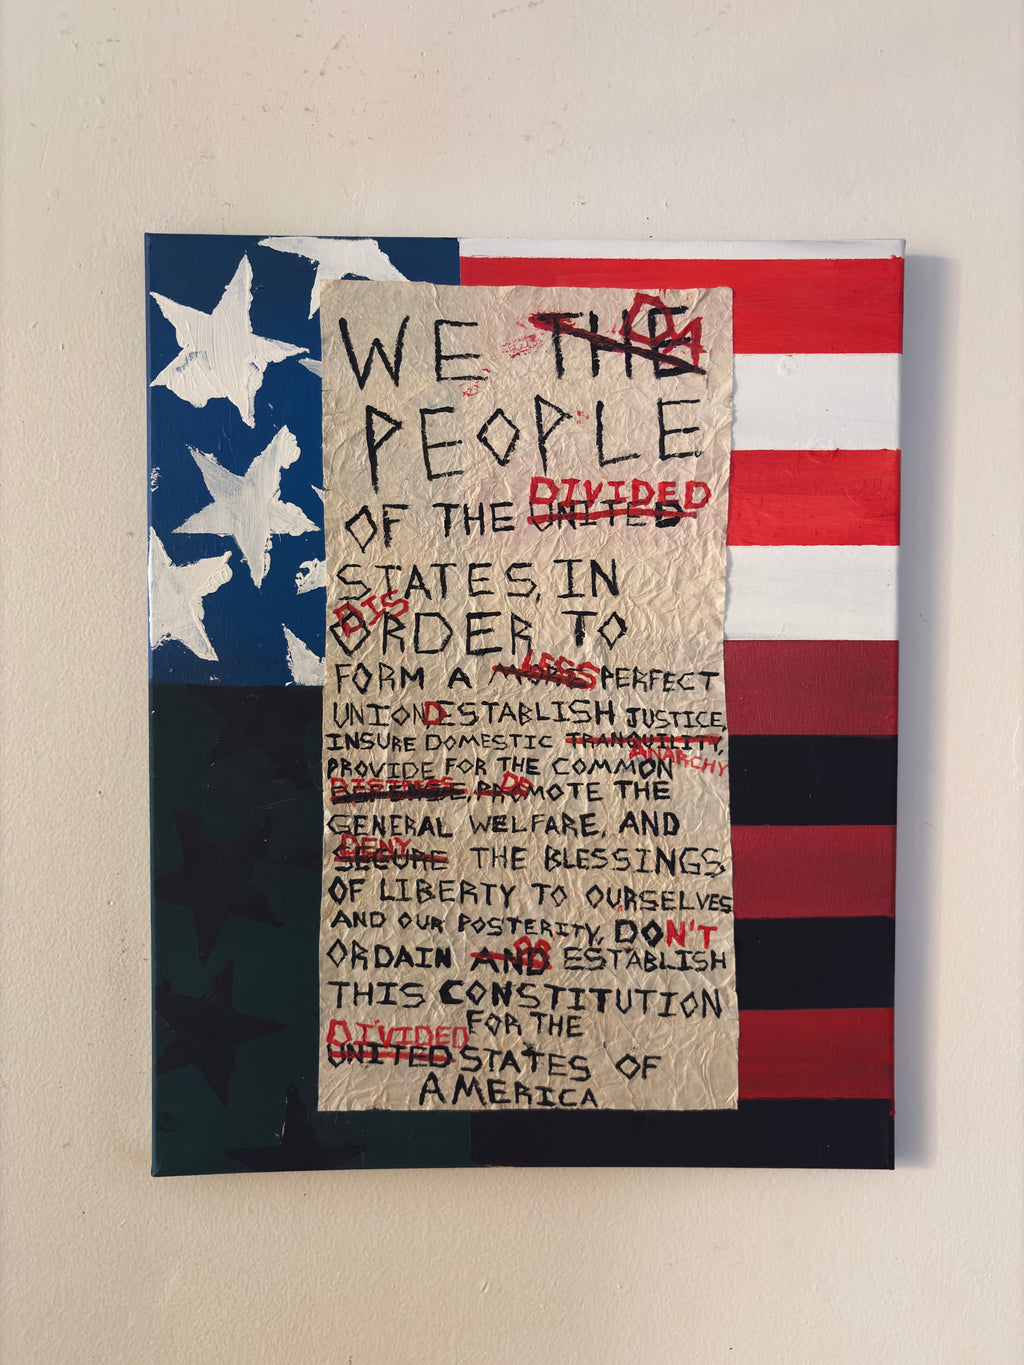 WE THE DA
PEOPLE
DIVIDED
OF THE UNITED
STATES, IN
DIS
ORDER TO
LESS
FORM A MORE PERFECT
UNION DESTABLISH JUSTICE,
INSURE DOMESTIC TRANQUILITY,
ANARCHY
PROVIDE FOR THE COMMON
DE
DEFENSE, PROMOTE THE
GENERAL WELFARE, AND
DENY
SECURE THE BLESSINGS
OF LIBERTY TO OURSELVES
AND OUR POSTERITY, DON'T
OR
ORDAIN AND ESTABLISH
THIS CONSTITUTION
FOR THE
DIVIDED
UNITED STATES OF
AMERICA